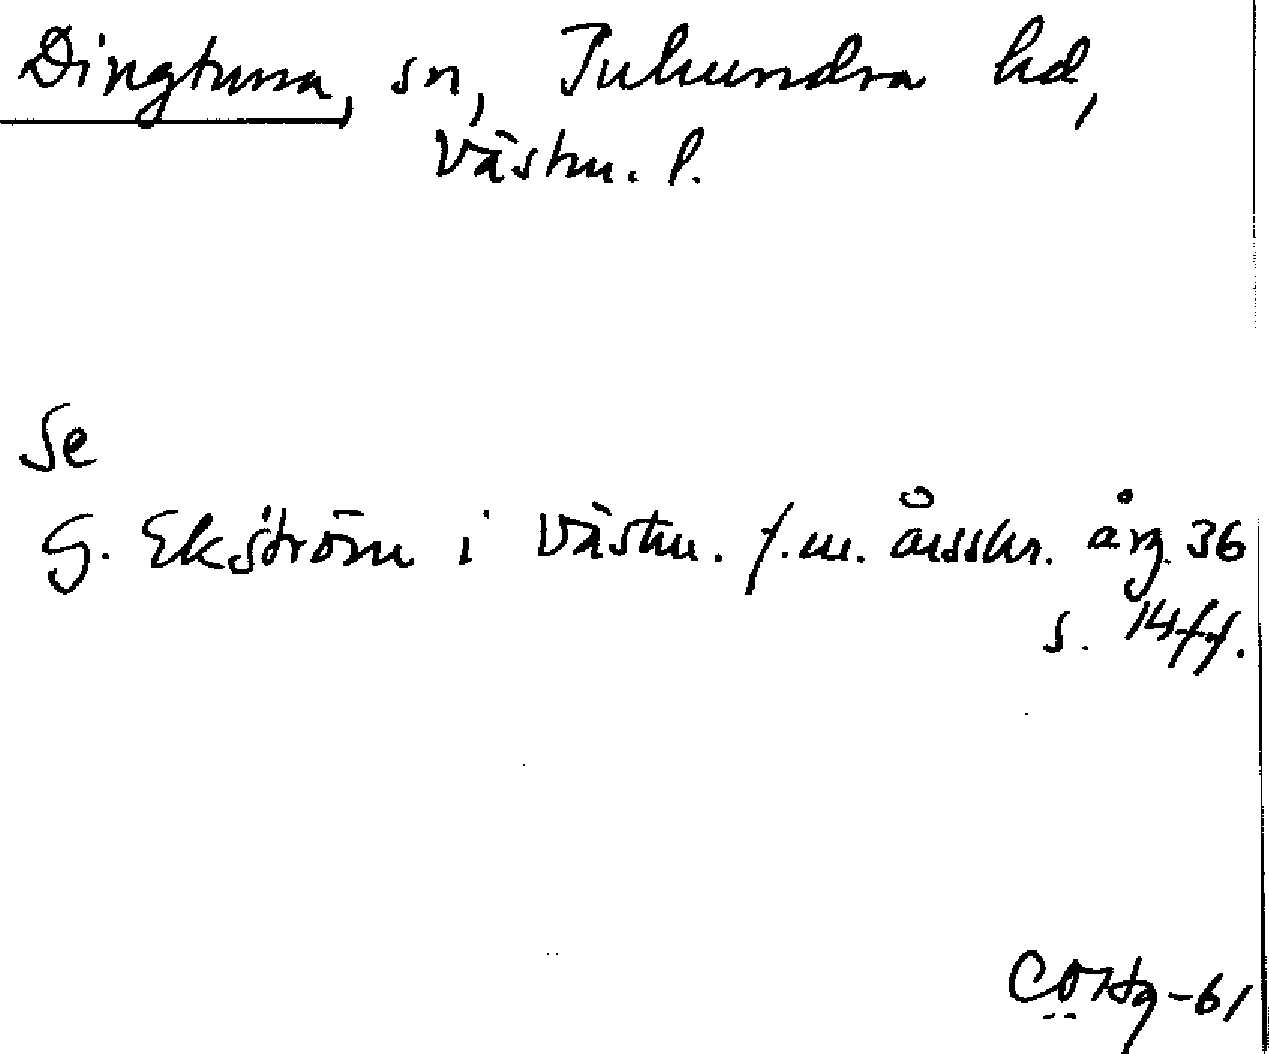 Dingtuna, sn, Tuhundra hd,
Västm. l.
Se
G. Ekström i Västm. f.m. årsskr. årg. 36
s. 14 ff.
-61